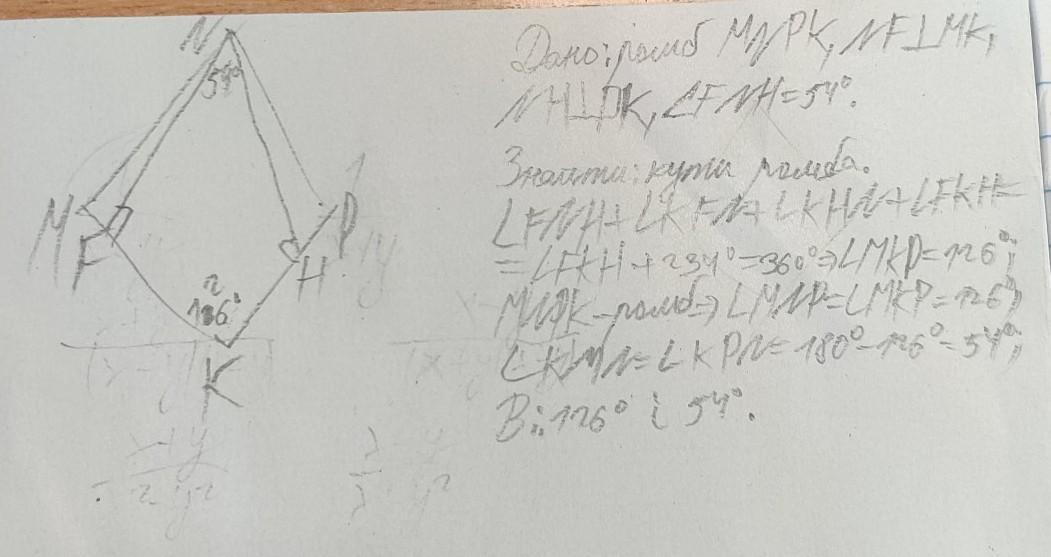 N
54°
M
F
P
H
126°
K
Дано: ромб MNPK, NF⊥MK,
NH⊥PK, ∠FNH=54°.
Знайти: кути ромба.
∠FNH+∠KFN+∠KHN+∠FKH=
=∠FKH+234°=360°⇒∠MKP=126°;
MNPK-ромб⇒∠MNP=∠MKP=126°;
∠KMN=∠KPN=180°-126°=54°;
В: 126° і 54°.